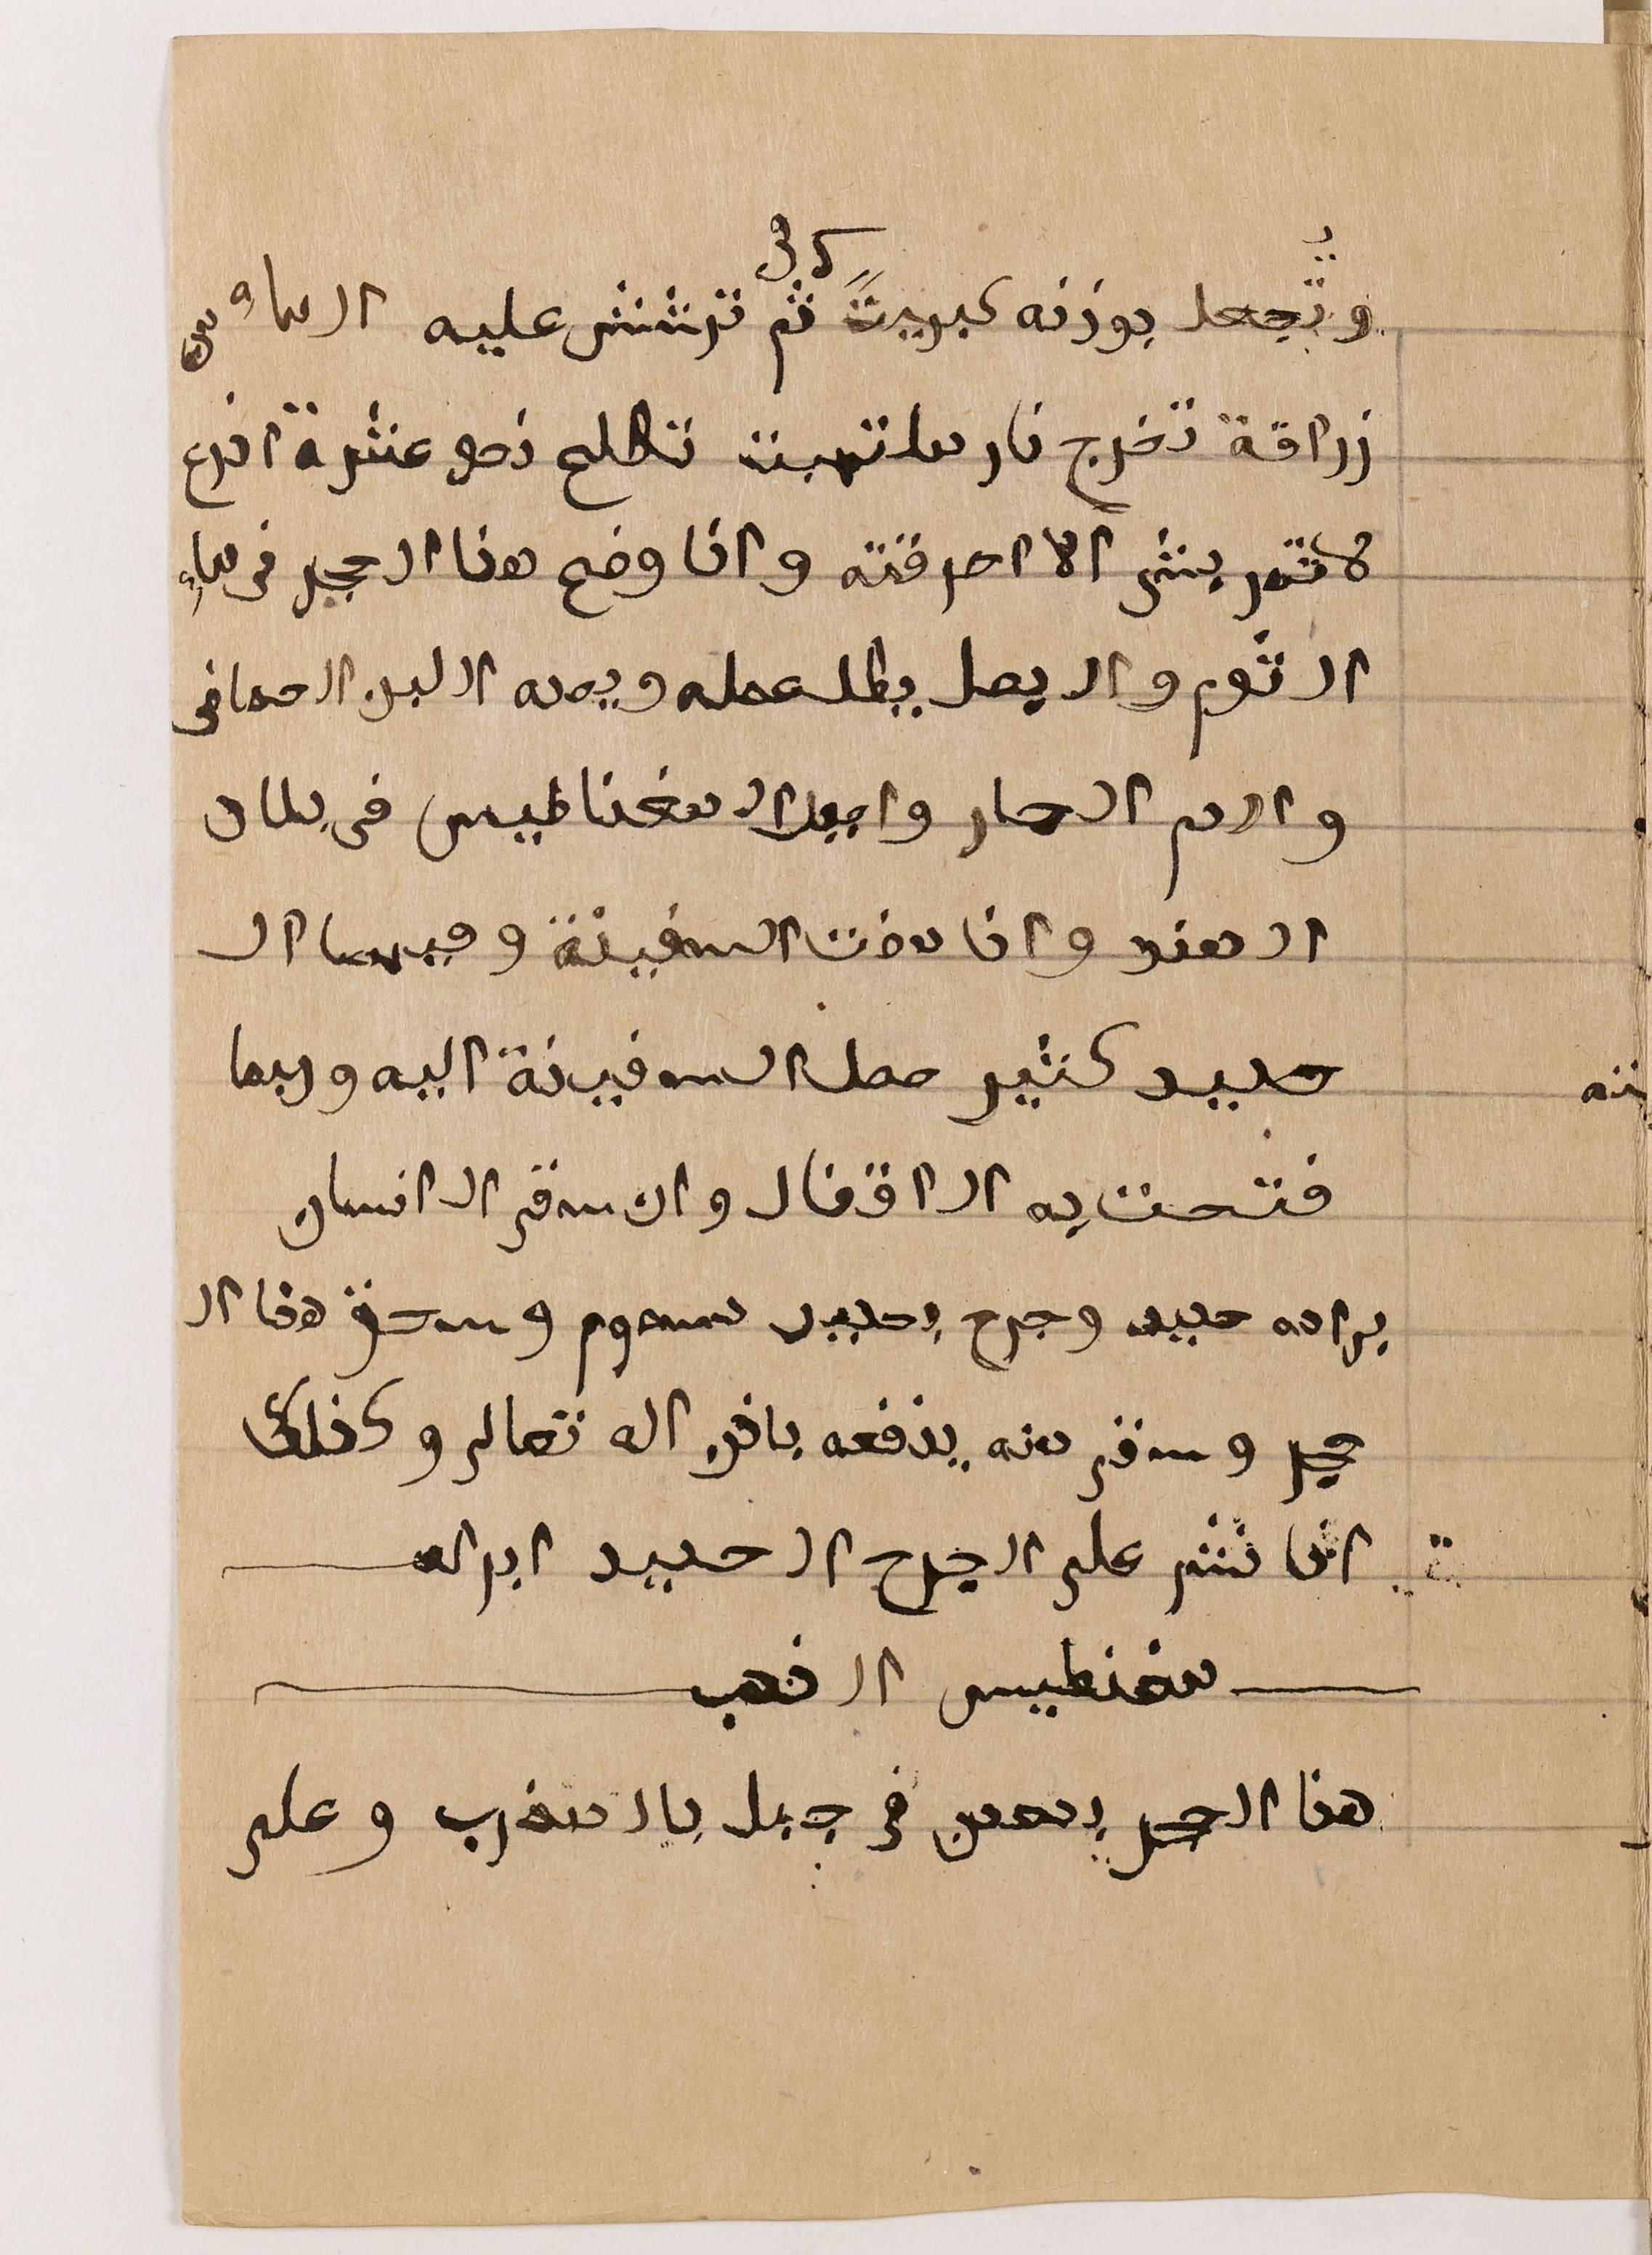 وتجعل بوزنه كبريت ثم ترشش عليه الماء من
زراقة تخرج نار ملتهبت تطلع نحو عشرة اذرع
لا تمر بشى الا احرقته واذا وضع هذا الحجر فى ماء
الثوم والبصل بطل عمله ويرده البن الصافى
والدم الحار واجبل المغناطيس فى بلاد
الهند واذا مرت السفينة وفيها ال
حديد كثير حصل السفينة اليه وربما
فتحت به الاقفال وان سقى الانسان
براده حديد وجرح بحديد مسموم وسحق هذا ال
حجر وسقى منه ينفعه باذن اله تعالى وكذلك
اذا نثر على الجرح الحديد ابراه
مغنطيس الذهب
هذا الحجر بمعدن فى جبل بالمغرب وعلى